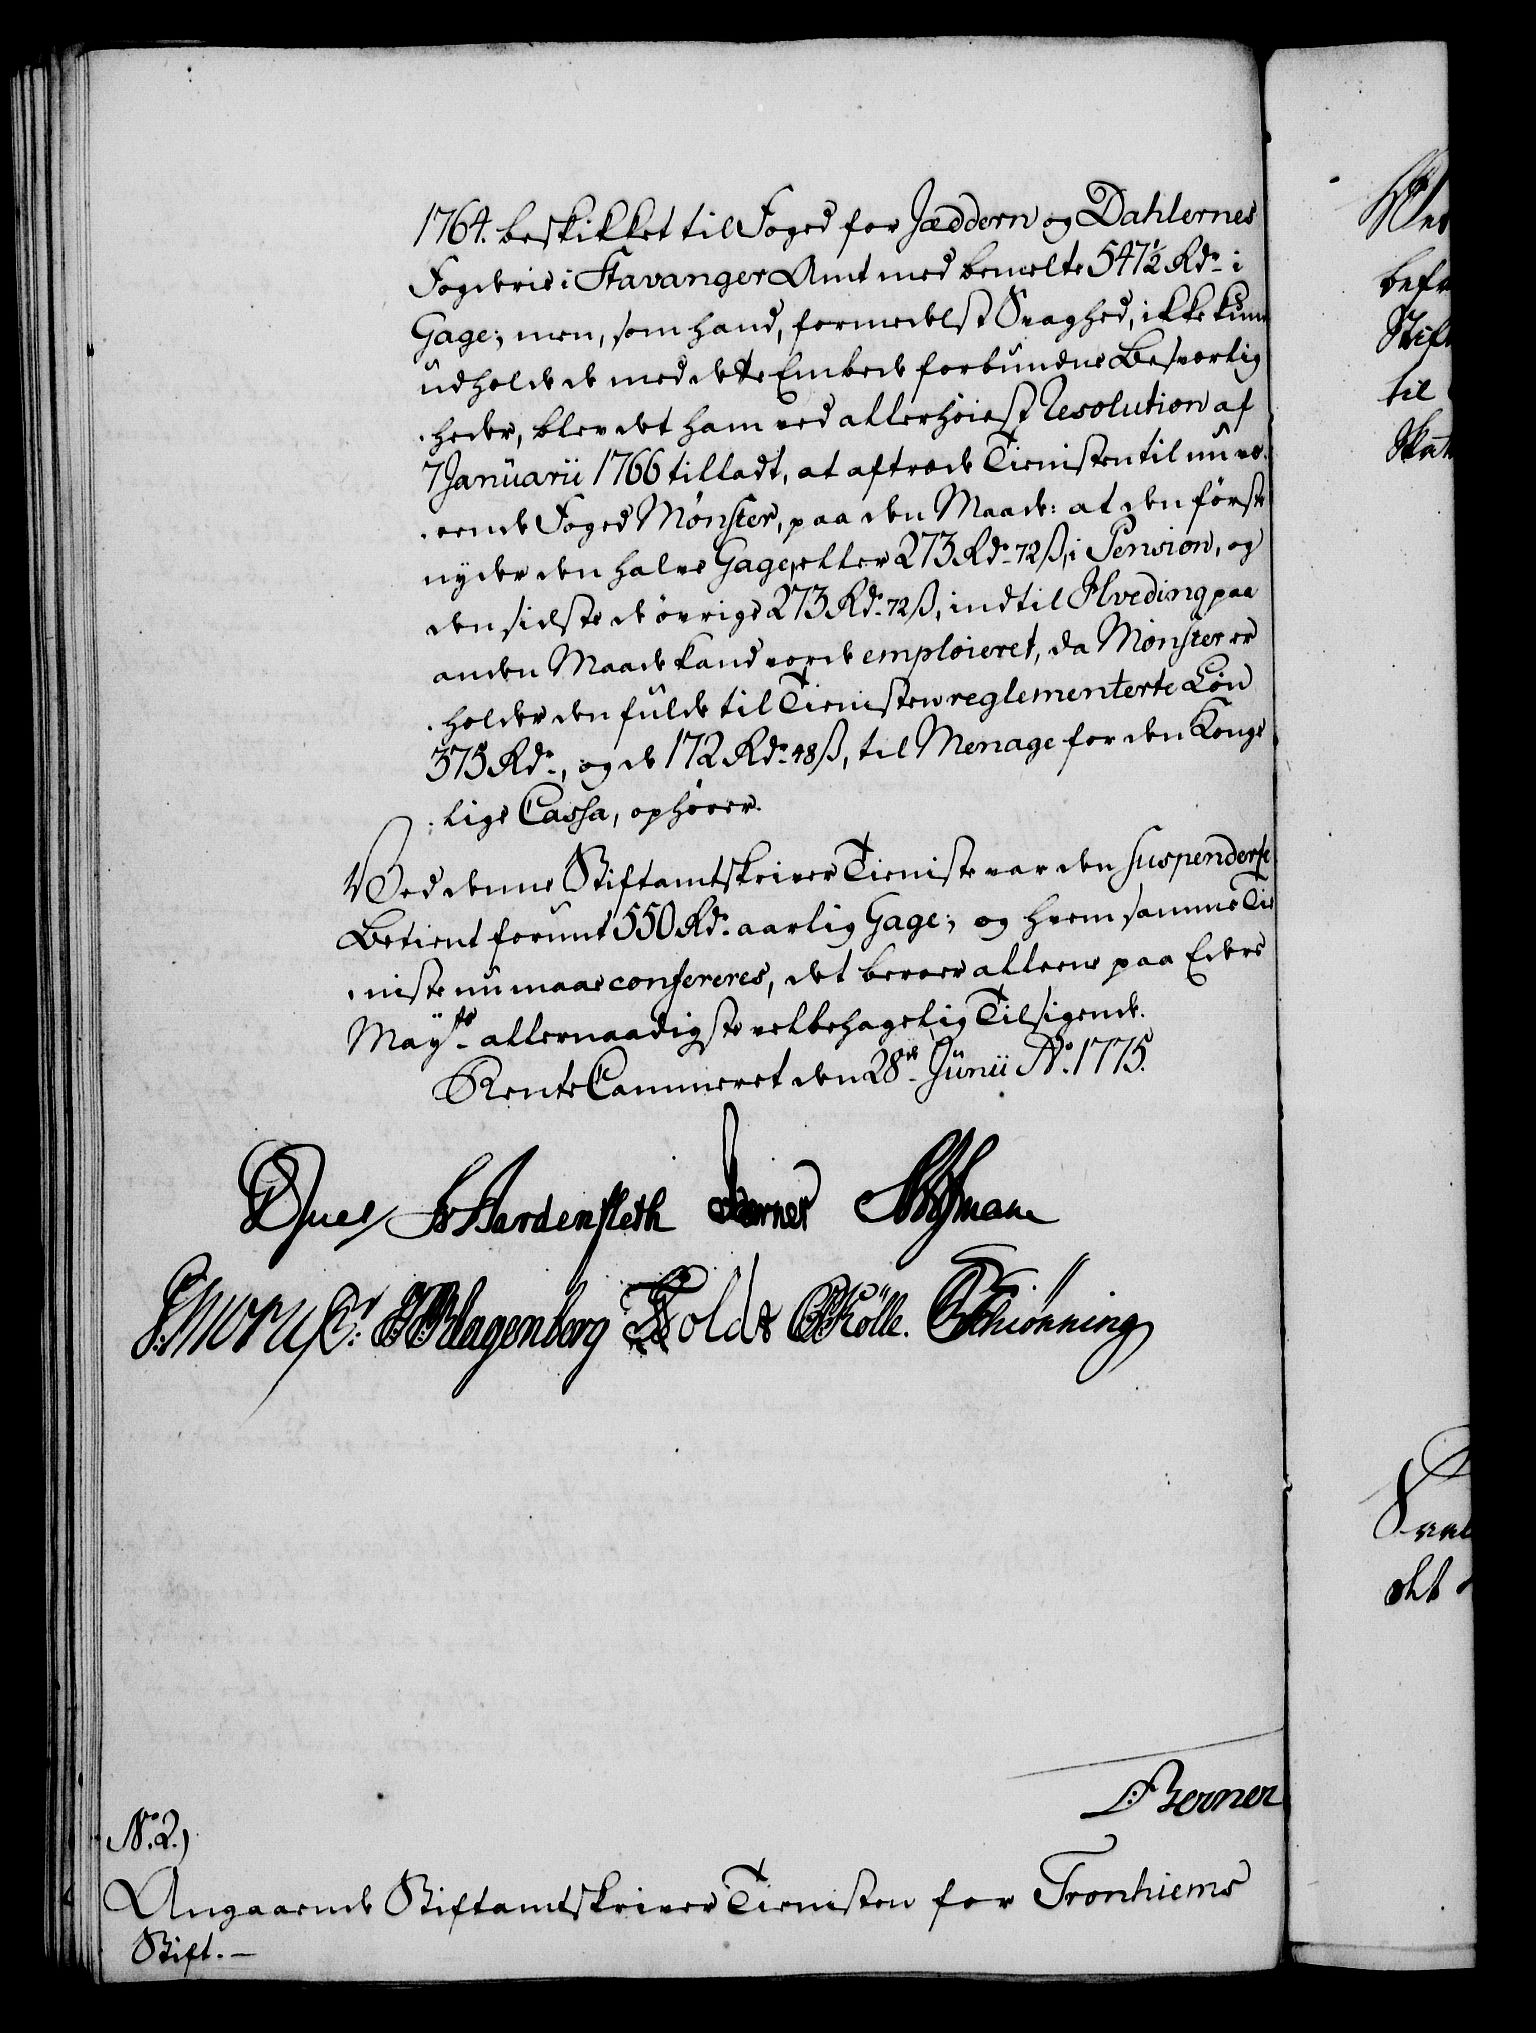 1764. beskikket til Foged for Jæddern og Dahlernes
Fogderie i Stavanger Amt med bemelte 547½ Rdr i
Gage; men, som hand, formedelst Svaghed, ikke kunde
udholde de med dette Embede forbundne Besværlig
heder, blev det ham ved allerhöiest Resolution af
7 Januarii 1766 tilladt, at aftræde Tienisten til nuvæ-
rende Foged Mønster, paa den Maade: at den første
nyder den halve Gage, eller 273 Rdr 72 ß, i Pension, og
den sidste de øvrige 273 Rdr 72 ß, indtil Hveding paa
anden Maade kand vorde emploieret, da Mønster er
holder den fulde til Tienisten reglementerte Løn
375 Rdr, og de 172 Rdr 48 ß, til Menage for den Konge
lige Cassa, ophører.
Ved denne Stiftamtskriver Tieniste var den suspenderte
Betient forunt 550 Rdr aarlig Gage; og hvem samme Tie
niste nu maae confereres, det beroer alleene paa Eders
Mayts allernaadigste velbehagelig Tilsigende.
RenteCammeret den 28de Junii Ao. 1775.
Juel Hardenfleth Berner
Klagenberg Holdt Rølle. Schiönning
Berner
No. 2.)
Angaaende Stiftamtskriver Tienisten for Tronhiems
Stift. —
til